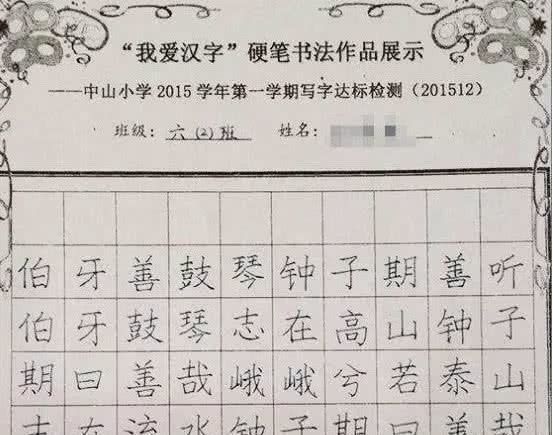 “我爱汉字”硬笔书法作品展示
——中山小学2015学年第一学期写字达标检测（201512）
班级：六(2)班 姓名：
伯牙善鼓琴钟子期善听
伯牙鼓琴志在高山钟子
期曰善哉峨峨兮若泰山
志在流水钟子期曰善哉